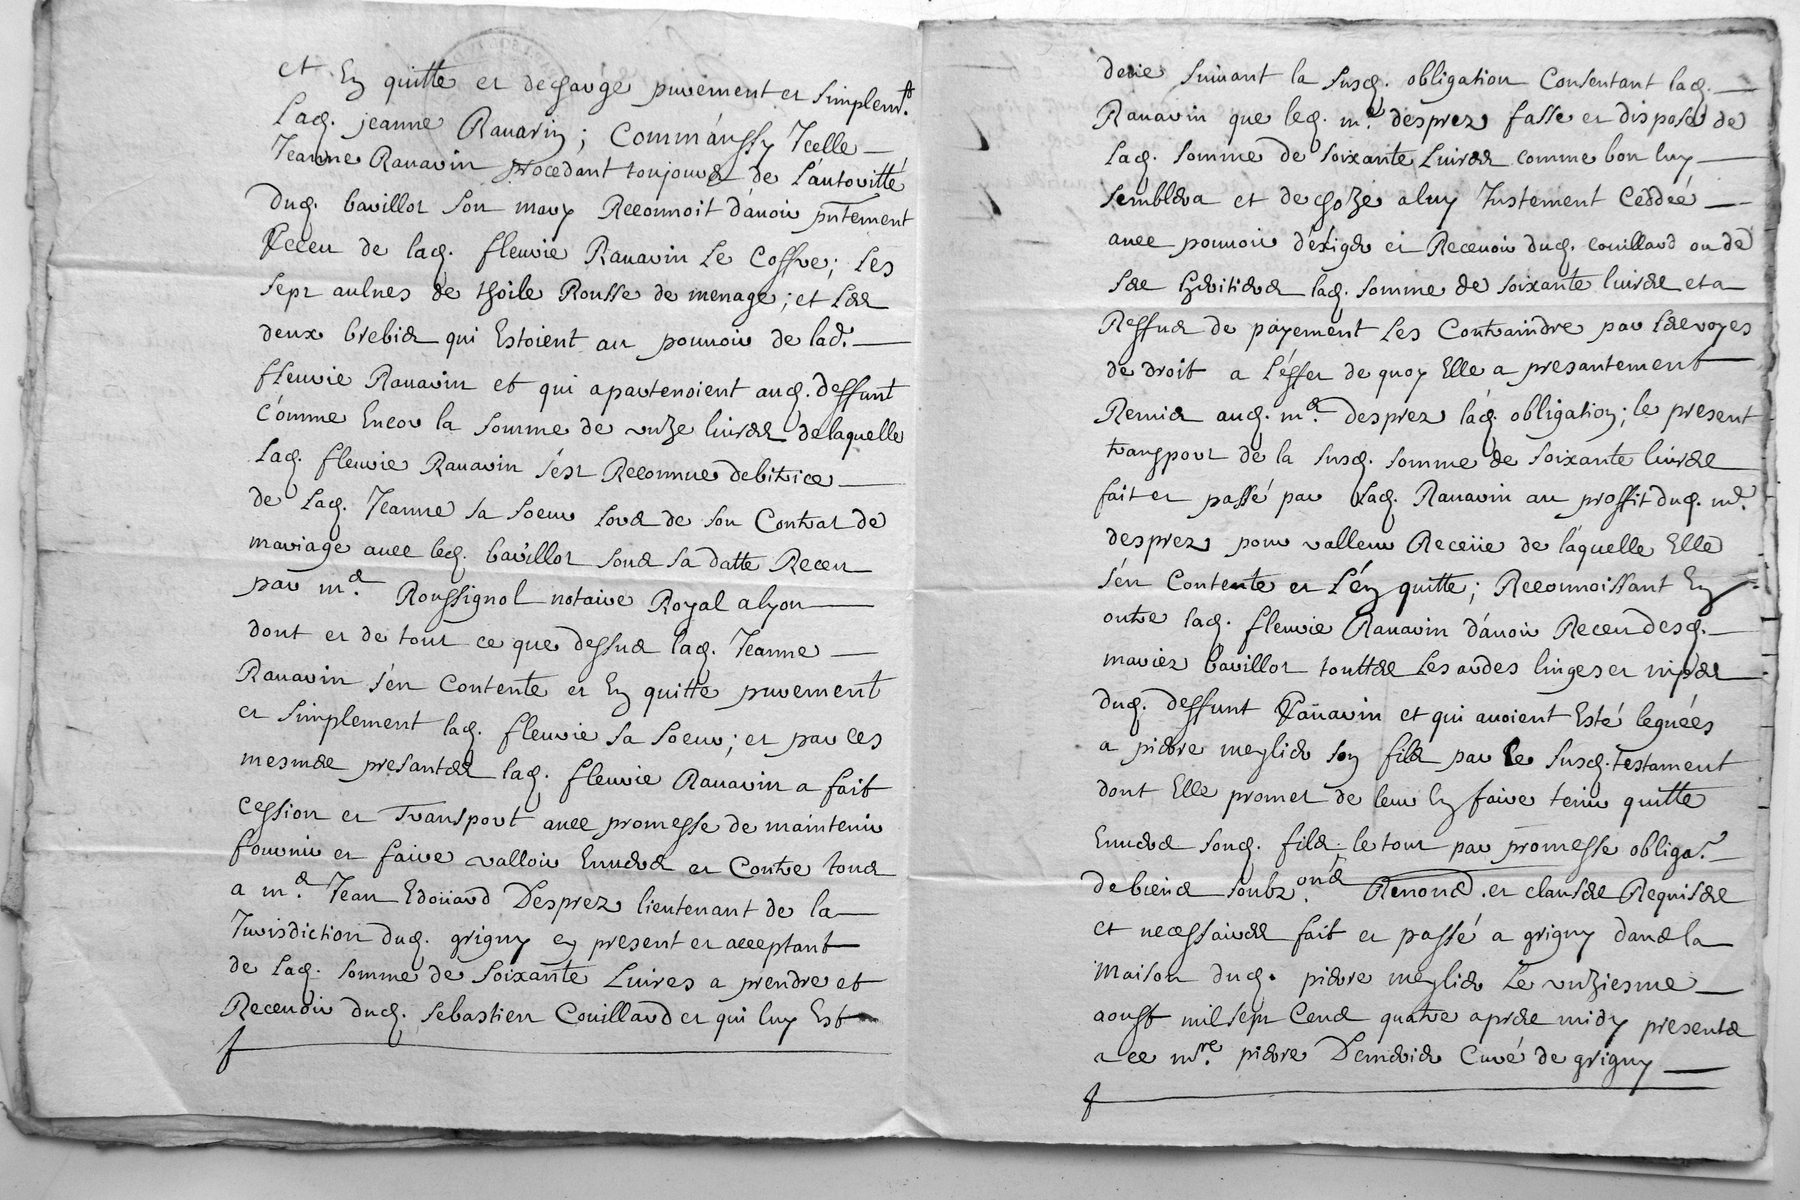 et En quitte et descharge purement et simplemt.
Lad. jeanne Ravarin; Comm'aussy Icelle
Jeanne Ravarin procedant toujours de L'autoritté
dud. bavillot son mary Reconnoit d'avoir pntement
Receu de lad. fleurie Ravarin Le Coffre; Les
sept aulnes de thoile Rousse de menage; et Les
deux brebis qui Estoient au pouvoir de lad.
fleurie Ravarin et qui apartenoient aud. deffunt
Comme Encor la somme de unze livres de laquelle
Lad. fleurie Ravarin s'est Reconnue debitrice
de Lad. Jeanne sa soeur Lors de son Contrat de
mariage avec led. bavillot sous sa datte Receu
par me. Roussignol notaire Royal a lyon
dont et de tout ce que dessus lad. Jeanne
Ravarin s'en Contente et En quitte purement
et simplement lad. fleurie sa soeur; et par ces
mesmes presantes lad. fleurie Ravarin a fait
Cession et Transport avec promesse de maintenir
fournir et faire valloir Envers et Contre tous
a me. Jean Edoüard Desprez lieutenant de la
Jurisdiction dud. grigny cy present et acceptant
de Lad. somme de soixante Livres a prendre et
Recevoir dud. sebastien Couillard et qui luy Est
deüe suivant la susd. obligation Consentant lad.
Ravarin que led. me. desprez fasse et dispose de
Lad. somme de soixante Livres comme bon luy
semblera et de choze a luy Justement Ceddée
avec pouvoir d'exiger et Recevoir dud. couillard ou de
ses heritiers lad. somme de soixante livres et a
Reffus de payement Les Contraindre par les voyes
de droit a L'effet de quoy Elle a presantement
Remis aud. me. desprez lad. obligation; le present
transport de la susd. somme de soixante livres
fait et passé par Lad. Ravarin au proffit dud. me.
desprez pour valleur Receüe de laquelle Elle
s'en Contente et L'en quitte; Reconnoissant En
outre lad. fleurie Ravarin d'avoir Receu desd.
mariez bavillot touttes Les ardes linges et nipes
dud. deffunt Ravarin et qui avoient Esté leguées
a pierre meylier son fils par Le susd. testament
dont Elle promet de leur En faire tenir quitte
Envers sond. fils; le tout par promesse obligaon.
de biens soubzons. Renonces. et clauses Requises
et necessaires fait et passé a grigny dans la
maison dud. pierre meylier Le unziesme
aoust mil sept Cens quatre apres midy presents
a ce mre. pierre Demerier Curé de grigny